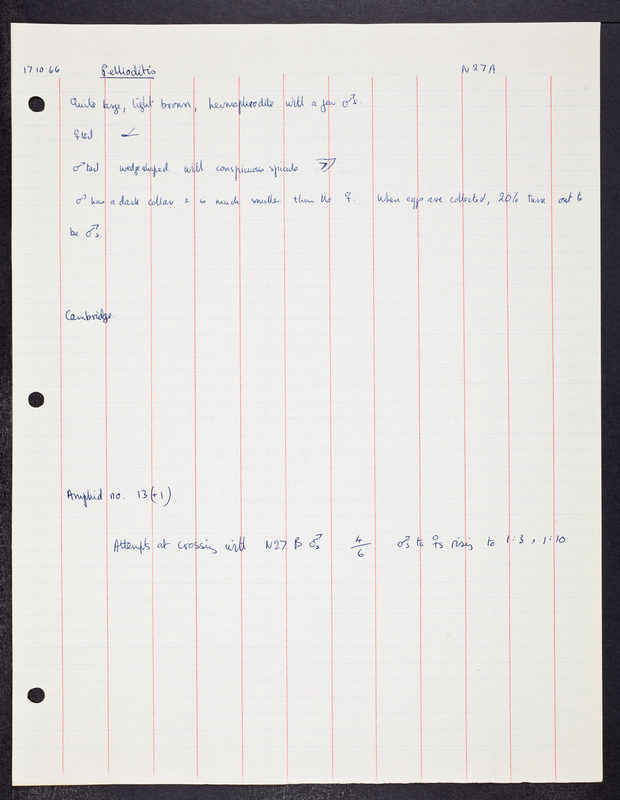 17 10 66 Pellioditis N27A
Quite large, light brown, hermaphrodite with a few ♂s.
♀ tail
♂ tail wedgeshaped with conspicuous spicule
♂ has a dark collar & is much smaller than the ♀. When eggs are collected, 20% turn out to
be ♂s.
Cambridge.
Amphid no. 13 (+1)
Attempts at crossing with N27 B ♂s 4/6 ♂s to ♀s rising to 1:3, 1:10